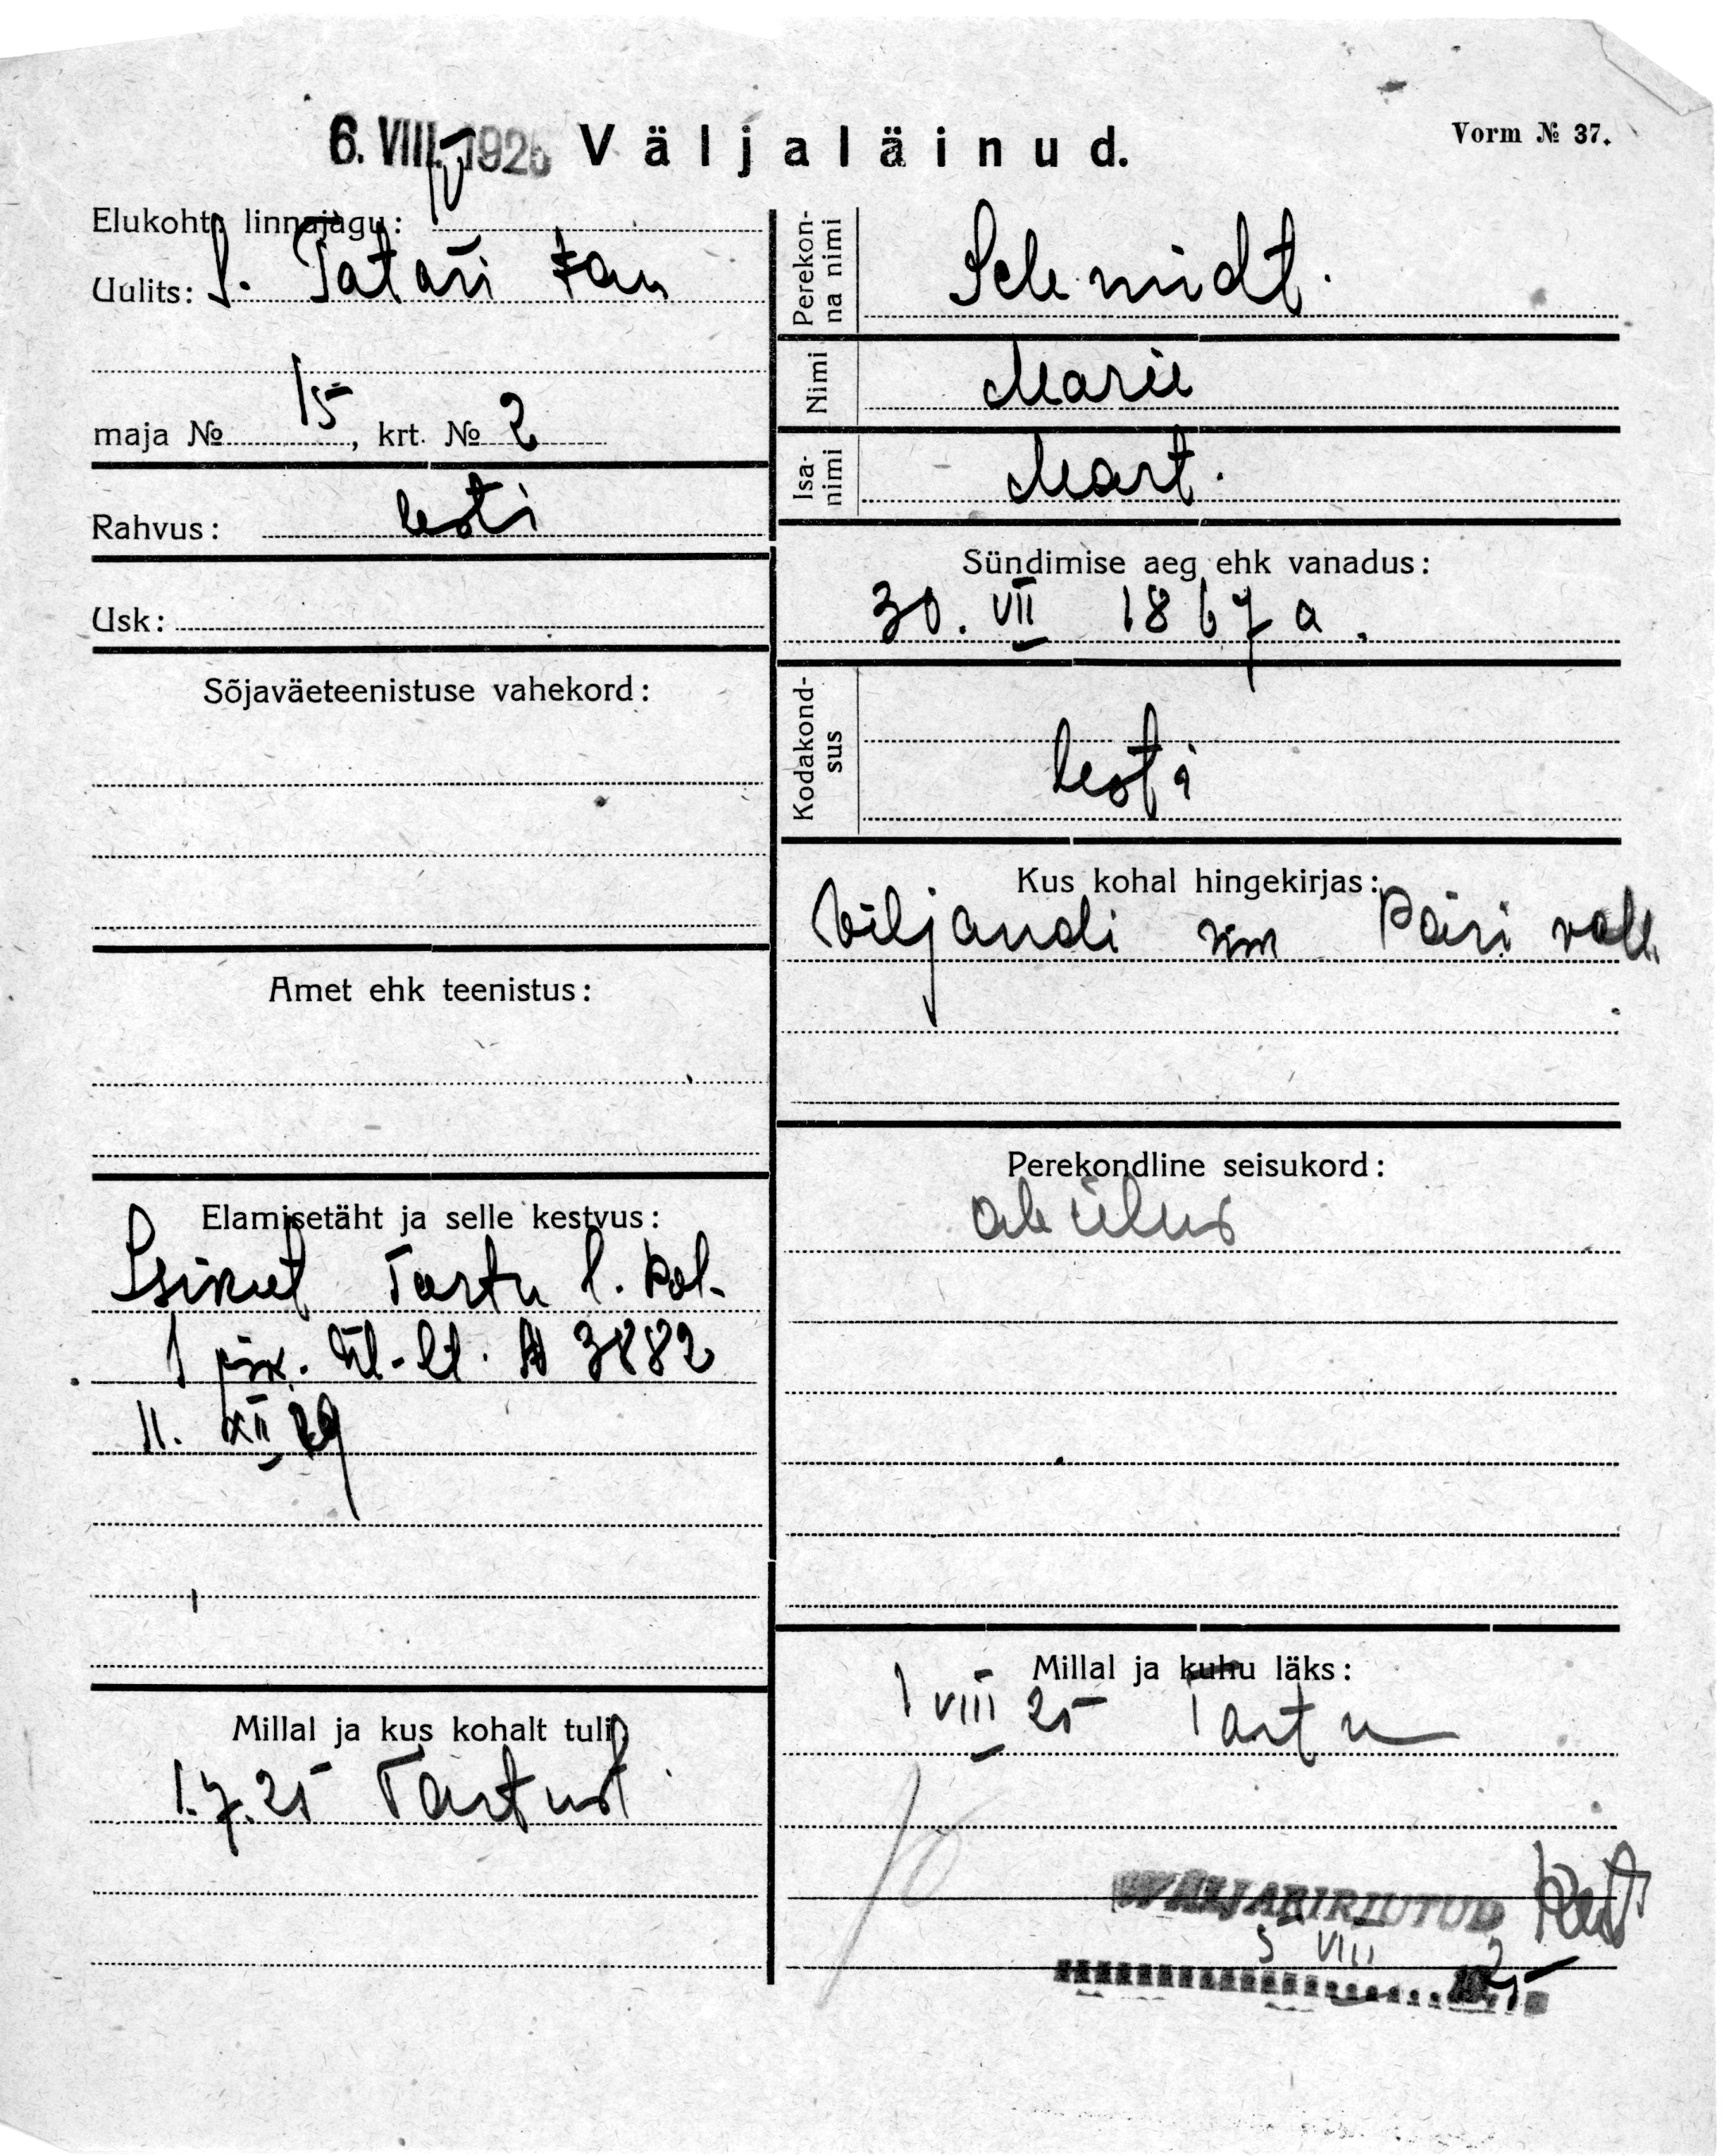 6. VIII. 1925 Väljaläinud.
Vorm № 37.
Elukoht: linnajagu: IV
Uulits: S. Tatari tän
maja № 15, krt. № 2
Rahvus: eesti
Usk:
Sõjaväeteenistuse vahekord:
Amet ehk teenistus:
Elamisetäht ja selle kestvus:
Isikut Tartu l. pol.
1 jsk. üle-lt. № 3882
11. XII
Millal ja kus kohalt tuli:
1.7.25 Tartust
Perekonna nimi
Schmidt.
Nimi
Marie
Isanimi
Mart.
Sündimise aeg ehk vanadus:
30. VII 1867 a.
Kodakondsus
Eesti
Kus kohal hingekirjas:
Viljandi km Päri vall.
Perekondline seisukord:
abielus
Millal ja kuhu läks:
1 VIII 25 Tartu
WÄLJAKIRJUTUD
5 VIII 25